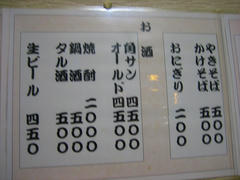 やきそば 五五〇
かけそば 五〇〇
おにぎり 二〇〇
お酒
角サン
オールド 四五〇
焼酎 二〇〇
鍋酒 五〇〇
タル酒 五〇〇
生ビール 四五〇